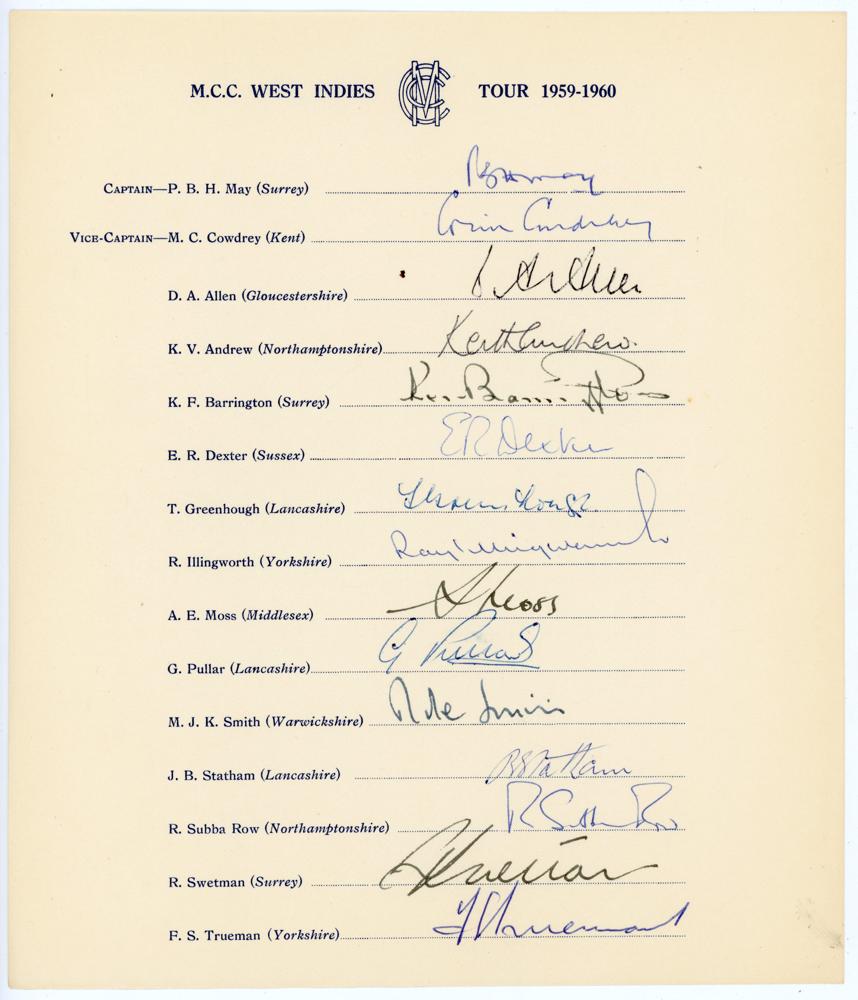 M.C.C. WEST INDIES MCC TOUR 1959-1960
CAPTAIN—P. B. H. May (Surrey) PBH May
VICE-CAPTAIN—M. C. Cowdrey (Kent) Colin Cowdrey
D. A. Allen (Gloucestershire) D. A. Allen
K. V. Andrew (Northamptonshire) Keith Andrew.
K. F. Barrington (Surrey) Ken Barrington
E. R. Dexter (Sussex) ER Dexter
T. Greenhough (Lancashire) T Greenhough
R. Illingworth (Yorkshire) Ray Illingworth
A. E. Moss (Middlesex) A Moss
G. Pullar (Lancashire) G Pullar
M. J. K. Smith (Warwickshire) Mike Smith
J. B. Statham (Lancashire) B Statham
R. Subba Row (Northamptonshire) R Subba Row
R. Swetman (Surrey) R Swetman
F. S. Trueman (Yorkshire) F S Trueman